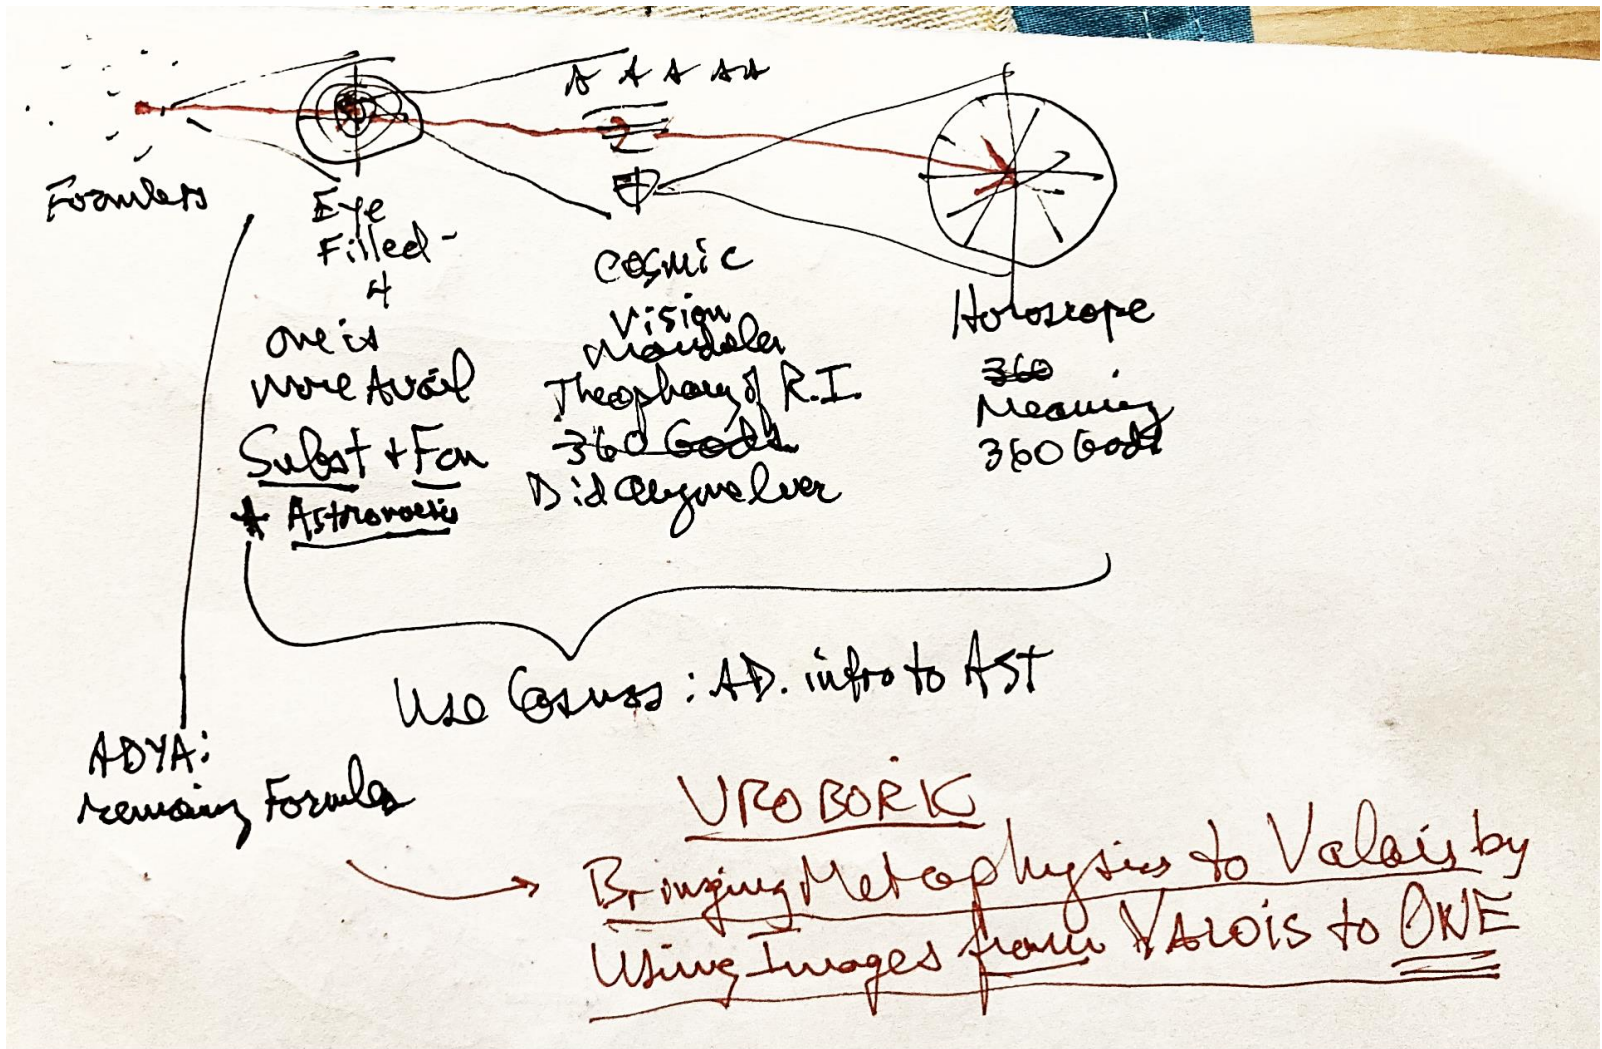 A A A AA
Formless
Eye
Filled -
4
one is
more Avail
Subst + Fon
* Astronoesis
COSMIC
Vision
Mandala
Theophany of R.I.
360 Gods
Did Anyone Ever
Horoscope
360
Meaning
360 Gods
Use Cosmos: AD. intro to AST
ADYA:
remaing Formles
UROBORIC
Bringing Metaphysics to Valois by
Using Images from VALOIS to ONE